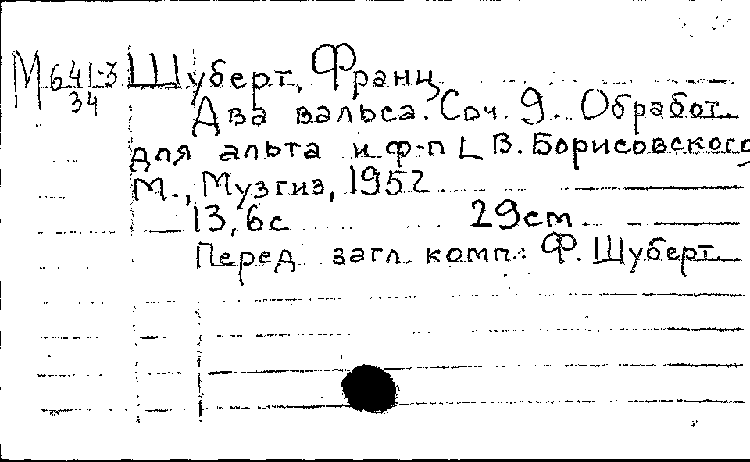 М 641-3 Шуберт, Франц
34
Два вальса. Соч. 9. Обработ.
для альта и ф-п [ В. Борисовского
М., Музгиз, 1952
13, 6с 29cm
Перед загл. комп.: Ф. Шуберт